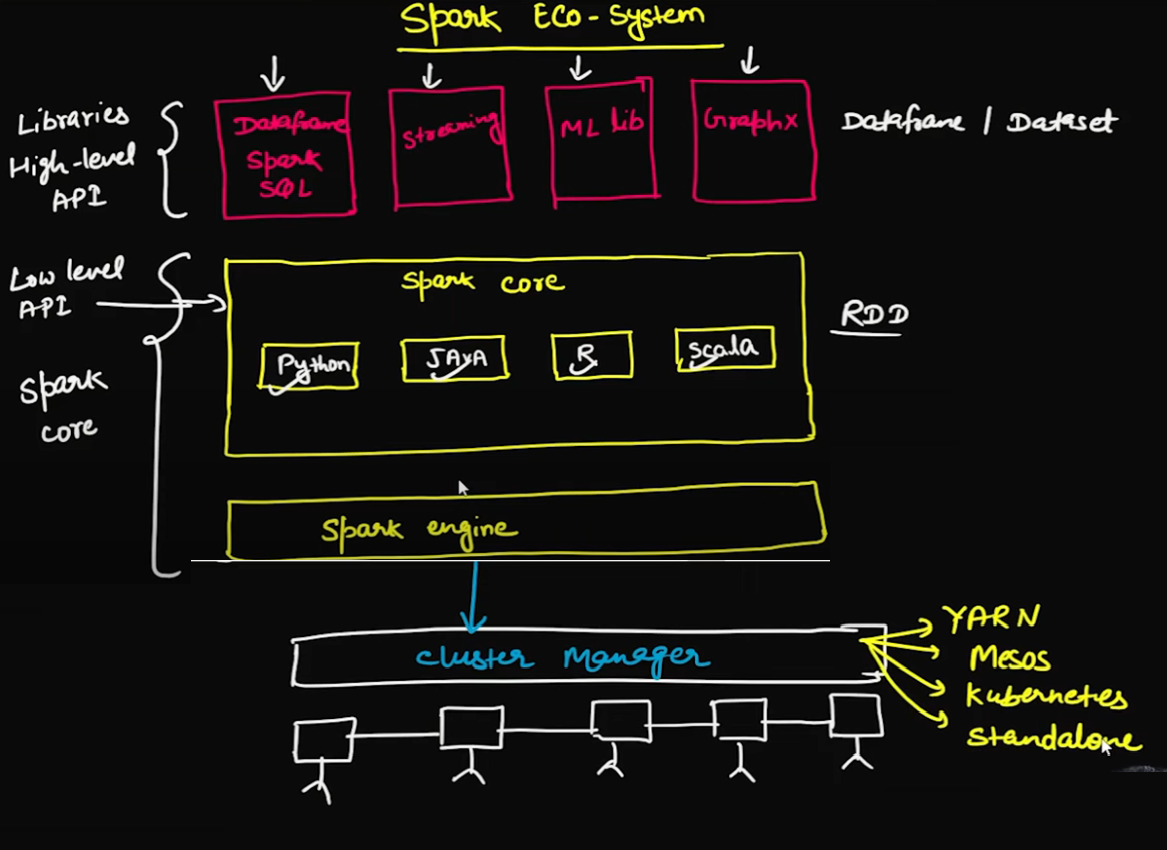 Spark Eco-System
Libraries
High-level
API
Dataframe
Spark
SQL
Streaming
ML lib
Graphx
Dataframe / Dataset
Low level
API
Spark
core
Spark core
Python
JAVA
R
Scala
RDD
Spark engine
Cluster Manager
YARN
Mesos
Kubernetes
Standalone